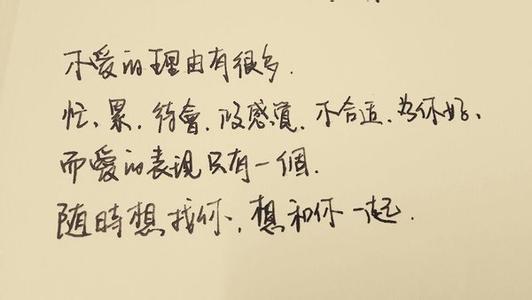 不愛的理由有很多.
忙、累.待會.没感覺.不合适.為你好、
而愛的表現只有一個.
随時想找你,想和你一起.